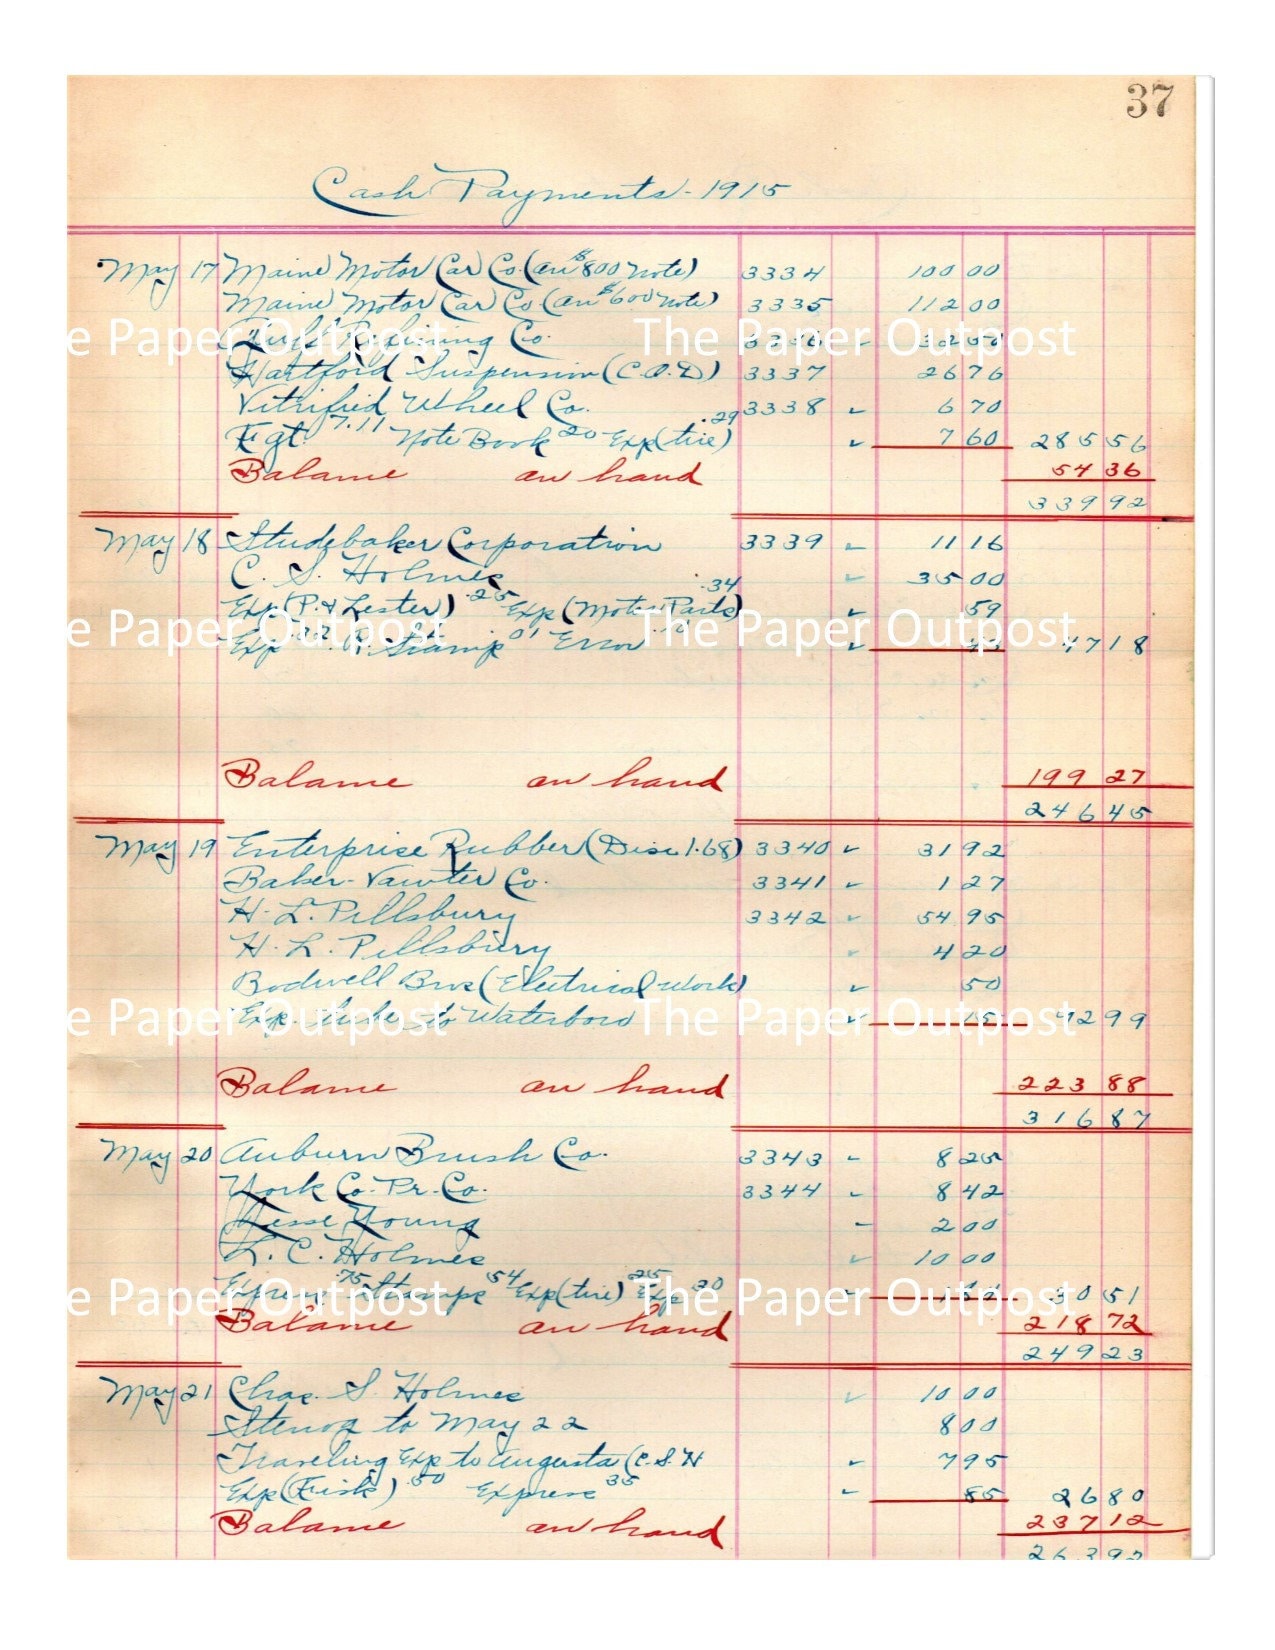 37
Cash Payments - 1915
May 17 Maine Motor Car Co. (on $800 note) 3334 100 00
Maine Motor Car Co (on $600 note) 3335 112 00
Gulf Refining Co. 3336 32 50
Hartford Suspension (C.O.D) 3337 26 76
Vitrified Wheel Co. 3338 6 70
Fgt. 7.11 Note Book 20 Exp (tire) .29 7 60 285 56
Balance on hand 54 36
339 92
May 18 Studebaker Corporation 3339 11 16
C. S. Holmes 35 00
Exp (P. & Lester) .25 Exp (Motor Parts) .34 59
Exp P. Stamp 01 Error 47 18
Balance on hand 199 27
246 45
May 19 Enterprise Rubber (Disc 1.68) 3340 31 92
Baker-Vawter Co. 3341 1 27
H. L. Pillsbury 3342 54 95
H. L. Pillsbury 4 20
Bodwell Bros (Electrical work) 50
Exp. to Waterboro 15 92 99
Balance on hand 223 88
316 87
May 20 Auburn Brush Co. 3343 8 25
York Co. Pr. Co. 3344 8 42
Jesse Young 2 00
L. C. Holmes 10 00
Express .75 Stamps .54 Exp (tire) 25 Exp 30 30 51
Balance on hand 218 72
249 23
May 21 Chas. S. Holmes 10 00
Stenog to May 22 8 00
Traveling Exp to Augusta (C.S.H 7 95
Exp (Fisk) .50 Express 35 85 26 80
Balance on hand 237 12
263 92
e Paper Outpost The Paper Outpost
e Paper Outpost The Paper Outpost
e Paper Outpost The Paper Outpost
e Paper Outpost The Paper Outpost